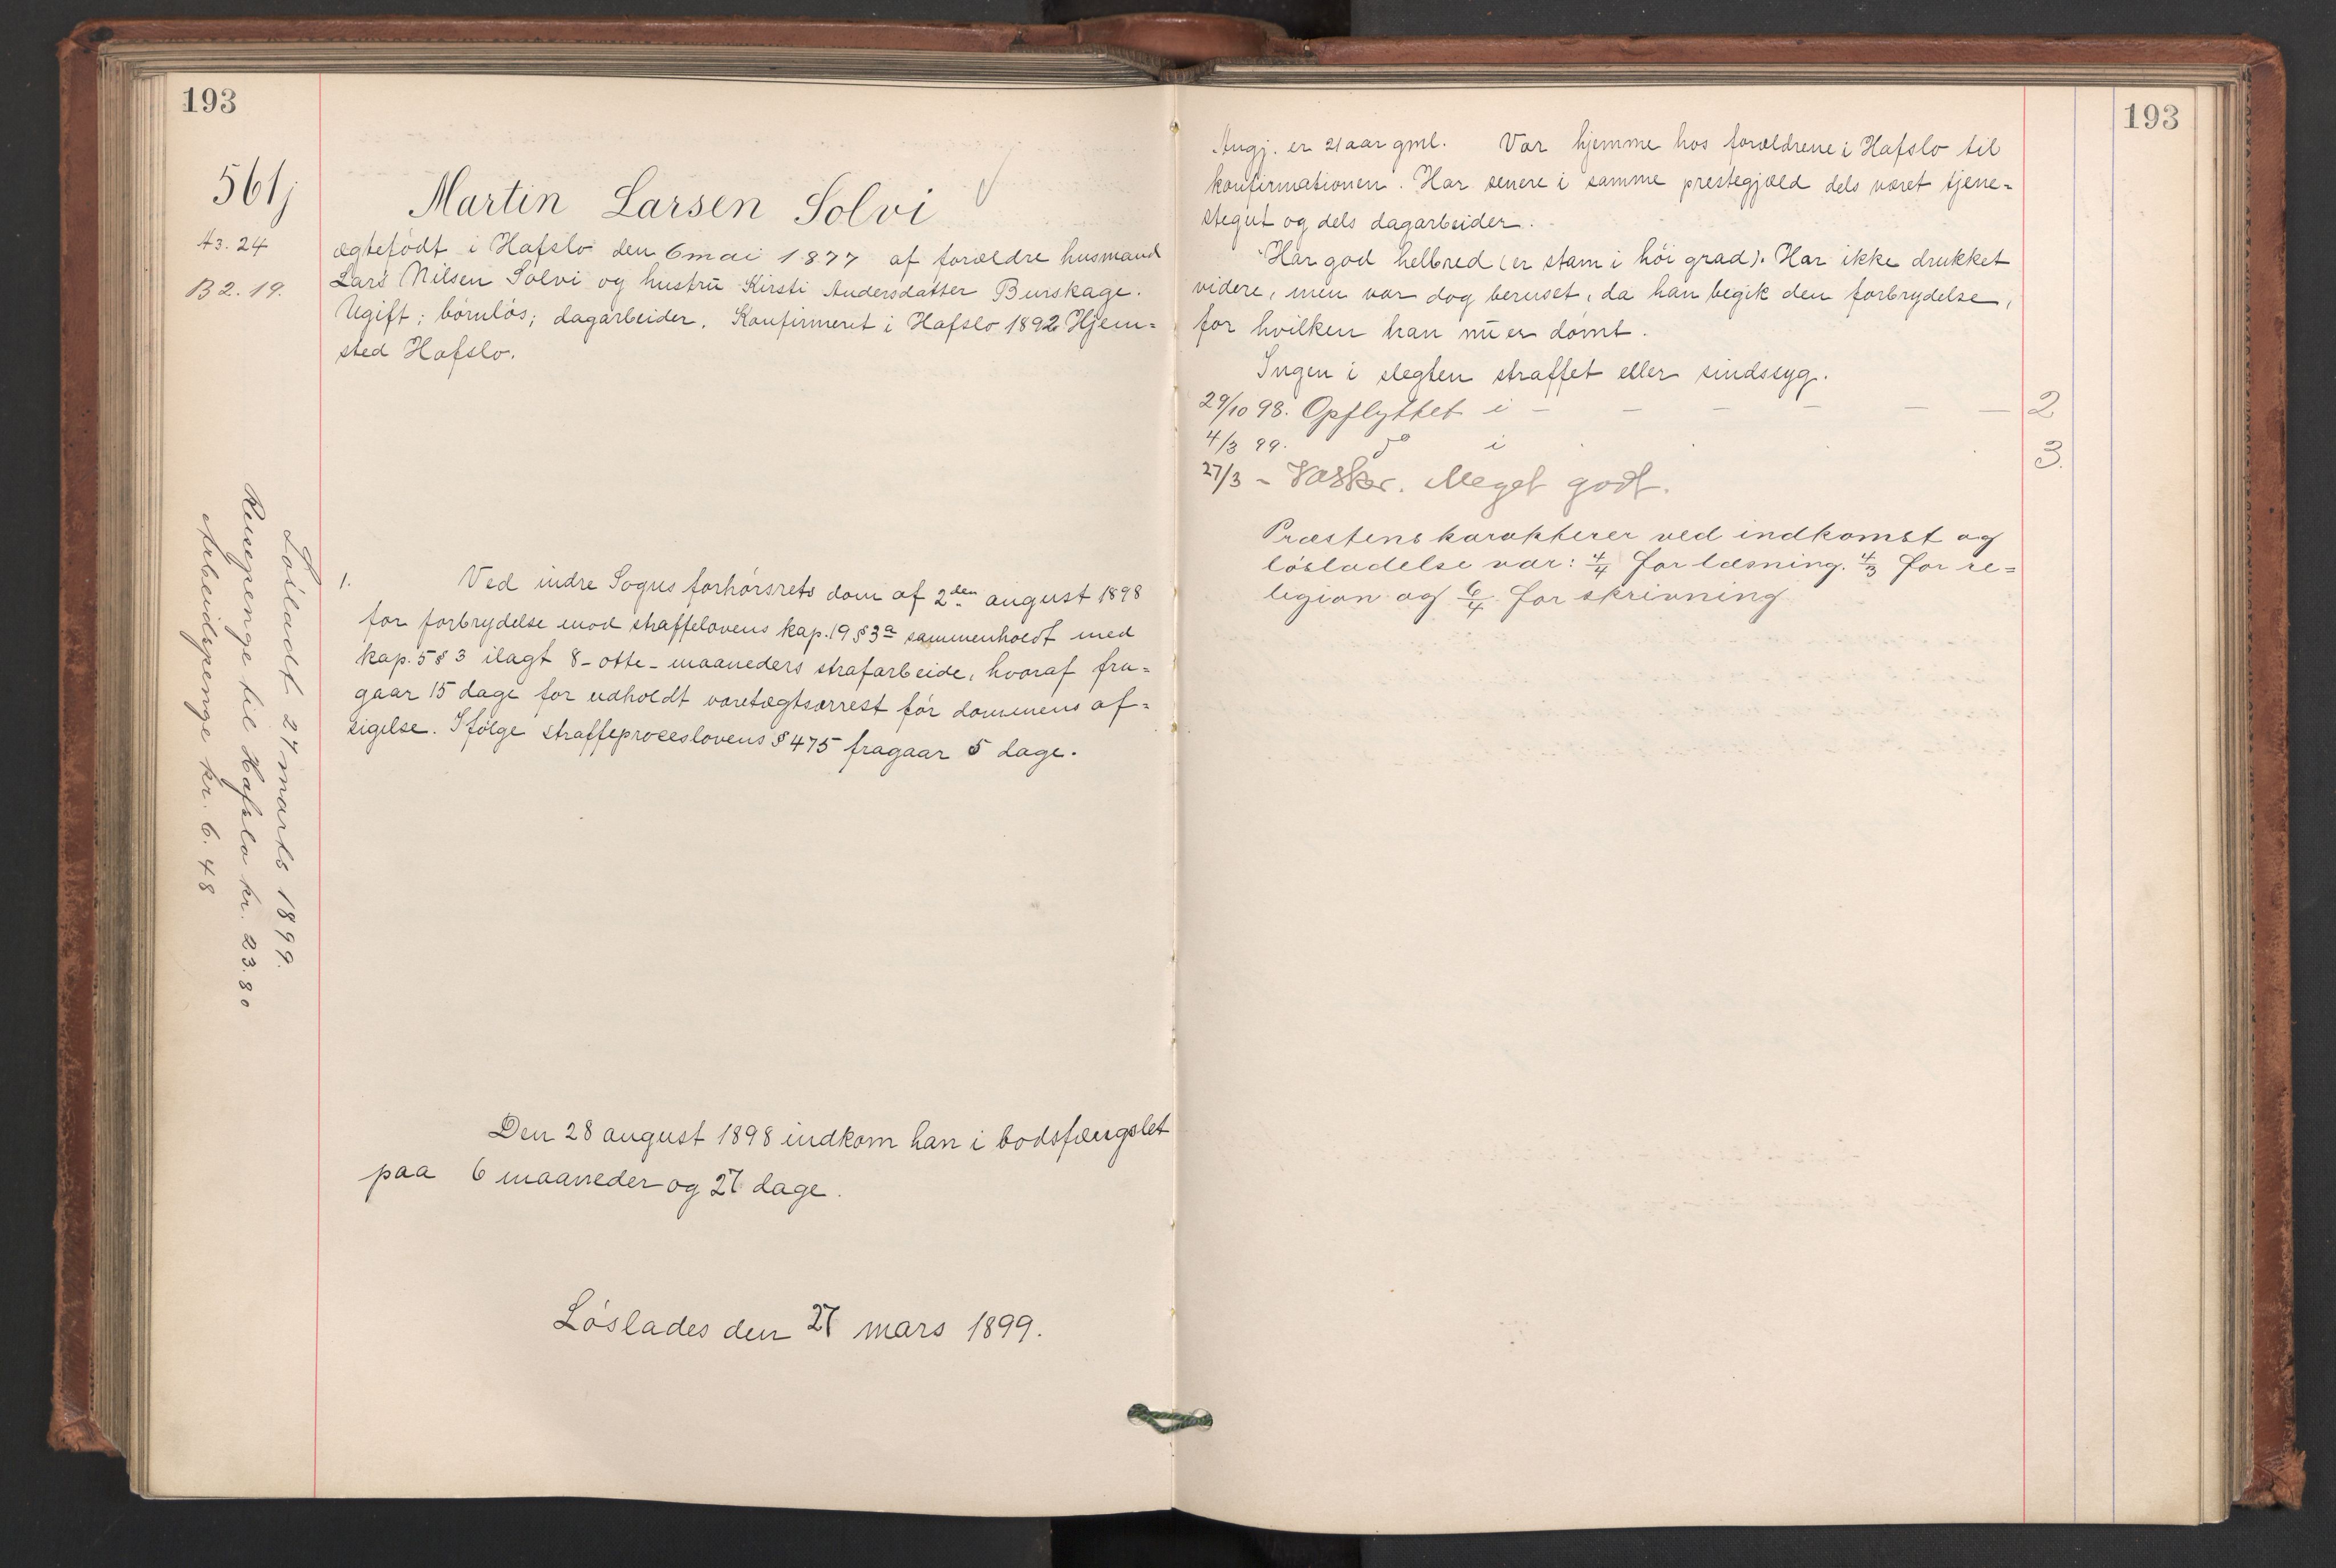 193
561j
A3. 24
B 2. 19.
Martin Larsen Solvi
ægtefödt i Hafslo den 6 mai 1877 af forældre husmand
Lars Nilsen Solvi og hustru Kirsti Andersdatter Burskage.
Ugift; börnlös; dagarbeider. Konfirmeret i Hafslo 1892 Hjem=
sted Hafslo.
1. Ved indre Sogns forhörsrets dom af 2den august 1898
for forbrydelse mod straffelovens kap. 19 § 3a sammenholdt med
kap. 5 § 3 ilagt 8 - otte - maaneders strafarbeide, hvoraf fra=
gaar 15 dage for udholdt varetægtsarrest för dommens af=
sigelse. Ifölge straffeproceslovens § 475 fragaar 5 dage.
Lösladt 27 marts 1899.
Reisepenge til Hafslo kr. 23.80
Arbeidspenge kr. 6.48
Den 28 august 1898 indkom han i bodsfængslet
paa 6 maaneder og 27 dage.
Löslades den 27 mars 1899.
193
Angj. er 21 aar gml. Var hjemme hos forældrene i Hafslo til
konfirmationen. Har senere i samme prestegjæld dels været tjene=
stegut og dels dagarbeider.
Har god helbred (er stam i höi grad). Har ikke drukket
videre, men var dog beruset, da han begik den forbrydelse,
for hvilken han nu er dömt.
Ingen i slegten straffet eller sindssyg.
29/10 98. Opflyttet i - - - - - - 2
4/3 99. do i 3.
27/3 - Vasker. Meget godt.
Præstens karakterer ved indkomst og
lösladelse var: 4/4 for læsning. 4/3 for re=
ligion og 6/4 for skrivning